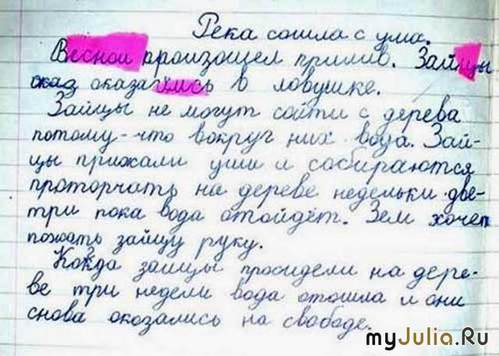 Река сошла с ума.
Весной произошел прилив. Зайцы
оказ оказались в ловушке.
Зайцы не могут сойти с дерева
потому-что вокруг них вода. Зай-
цы прижали уши и собираются
проторчать на дереве недельки две-
три пока вода отойдёт. Зем хочет
пожать зайцу руку.
Кокда зайцы просидели на дере-
ве три недели вода отошла и они
снова оказались на свободе.
myJulia.Ru